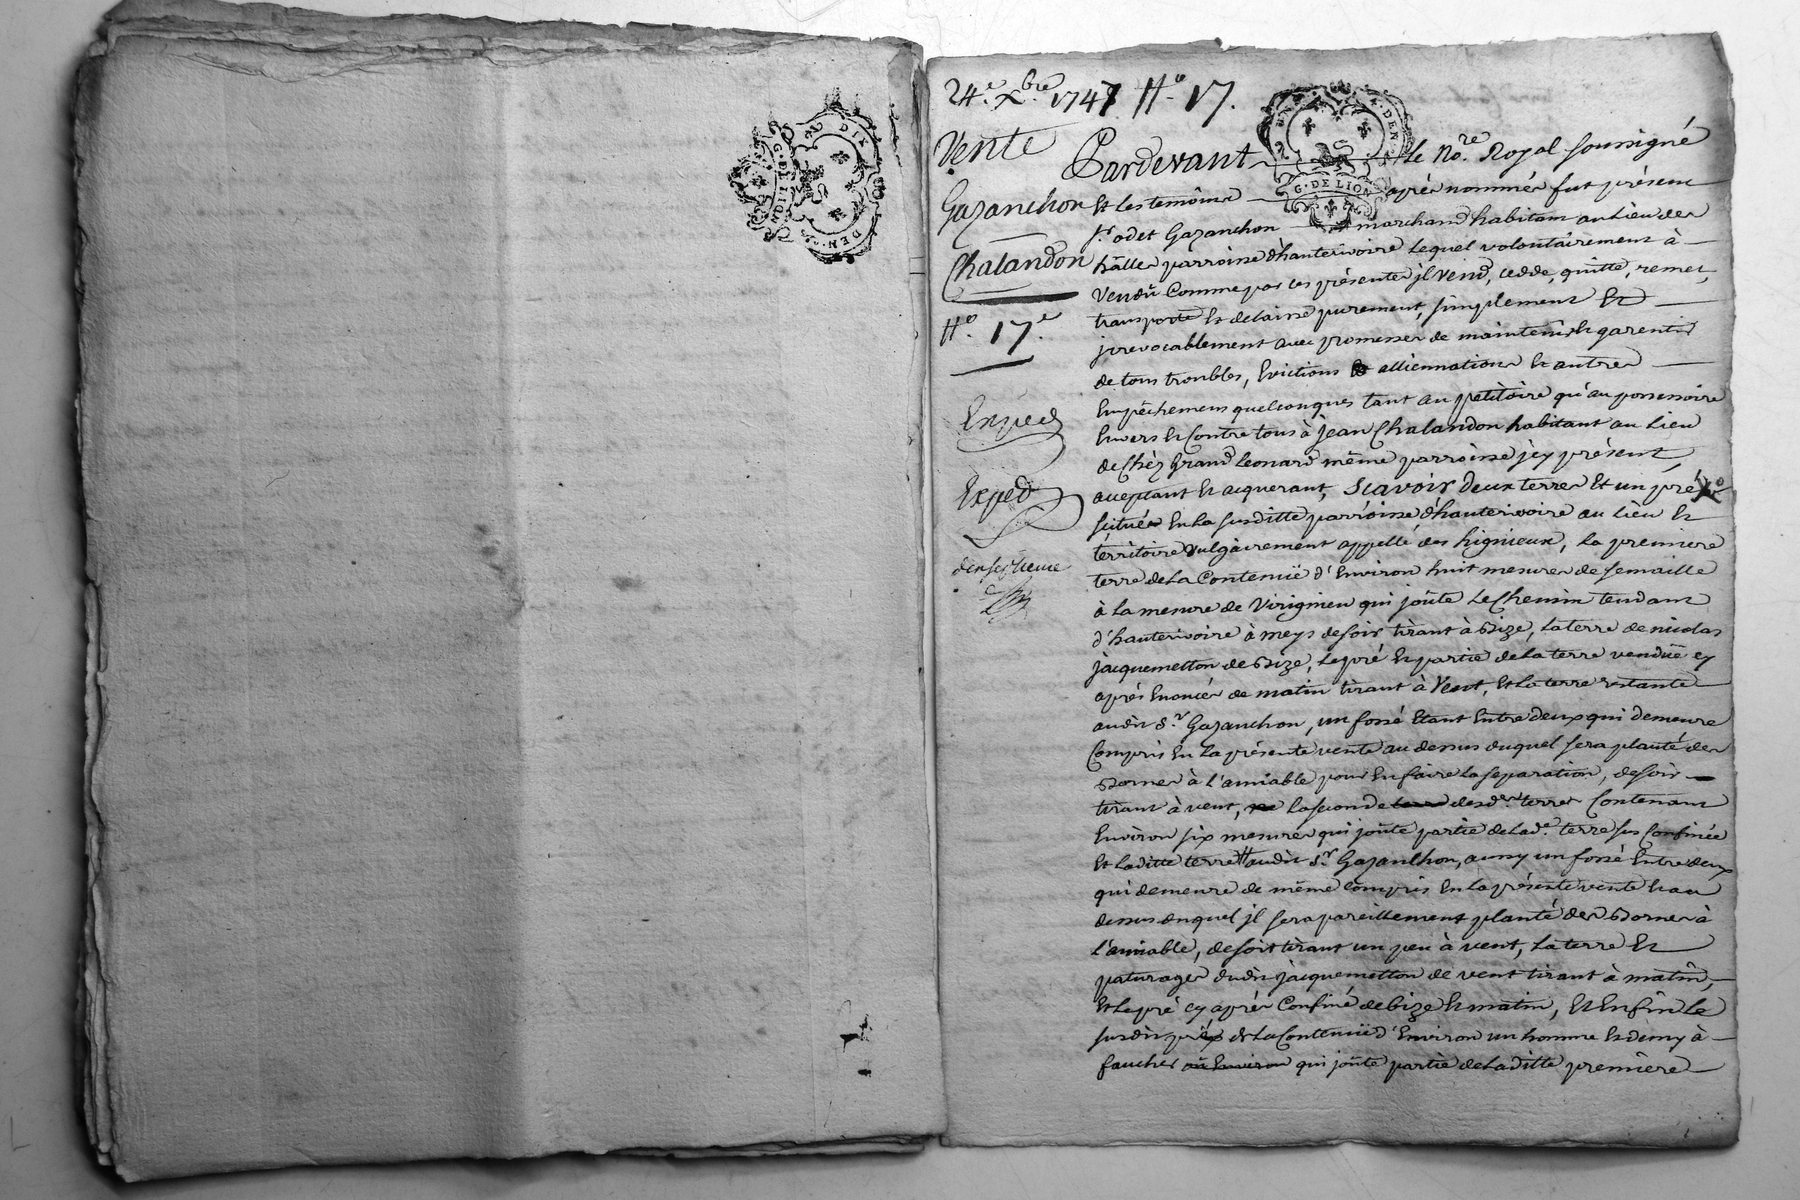 DIX
G. DE LION
DEN.
24.e Xbre 1747 No. 17.
DIX . DEN.
G. DE LION
Vente
Gazanchon
Chalandon
No. 17.e
Exped
Exped
Pardevant le No.re Royal soussigné
Et les temoins après nommés fut présent
sr. odet Gazanchon marchand habitant au lieu des
hâlles parroisse d'hauterivoire lequel volontairement à
Vendû Comme par ces présentes il Vend, cedde, quitte, remet,
transporte Et delaisse purement, simplement Et
jrrevocablement avec promesses de maintenir Et garentir
de tous troubles, Evictions alliennations Et autres
Empêchemens quelconques tant au petitoire qu'au possessoire
Envers Et Contre tous à Jean Chalandon habitant au Lieu
de Chéz Grand Leonard même parroisse jcy présent,
acceptant Et acquerant, Scavoir deux terres Et un pré
scituès En la susditte parroisse d'hauterivoire au Lieu Et
territoire vulgairement appellé des hignieux, la premiere
terre de la Contenüe d'Environ huit mesures de semaille
à la mesure de Virignieu qui joûte Le Chemin tendant
d'hauterivoire à meys de soir tirant à Bize, la terre de nicolas
jacquemetton de Bize, le pré Et partie de la terre vendüe cy
après Enoncés de matin tirant à Vent, Et la terre restante
audit Sr. Gazanchon, un fossé Etant Entre deux qui demeure
Compris En la présente vente au dessus duquel sera planté des
Bornes à l'amiable pour En faire la separation, de soir
tirant à vent, la seconde desd.es terres Contenant
Environ six mesures qui joûte partie de lad.e terre sus Confinée
Et laditte terre audit Sr. Gazanchon, aussy un fossé Entre deux
qui demeure de même compris En la présente vente Et au
dessus duquel jl sera pareillement planté des Bornes à
l'amiable, de soir tirant un peu à vent, La terre Et
paturages dudit jacquemetton de vent tirant à matin,
Et le pré cy après Confiné de bize Et matin, Et Enfin Le
susdit pré de la Contenüe d'Environ un homme Et demy à
faucher ou Environ qui joûte partie de laditte première